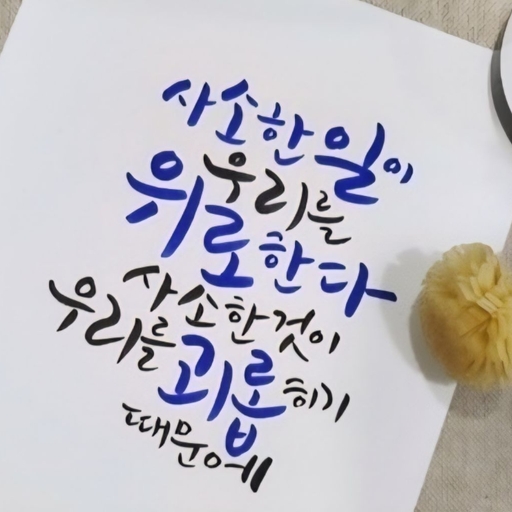 사소한 일이
우리를
위로한다
사소한 것이
우리를 괴롭히기
때문에